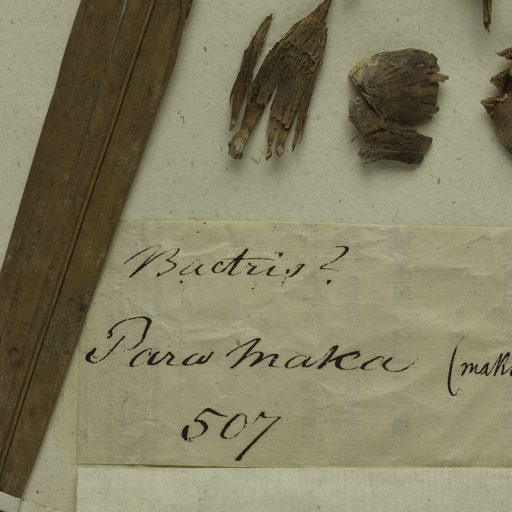 Bactris?
Para maka (mak
507